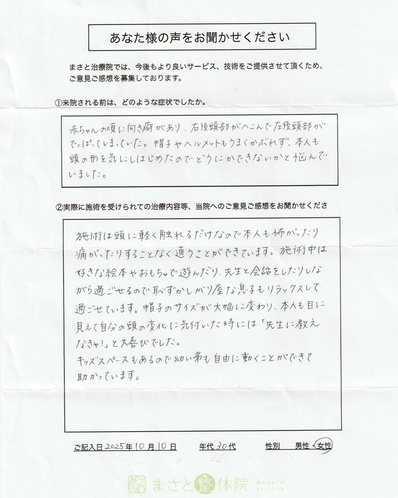 あなた様の声をお聞かせください
まさと治療院では、今後もより良いサービス、技術をご提供させて頂くため、
ご意見ご感想を募集しております。
①来院される前は、どのような症状でしたか。
赤ちゃんの頃に向き癖があり、右後頭部がへこんで左後頭部が
でっぱってしまっていた。帽子やヘルメットもうまくかぶれず、本人も
頭の形を気にしはじめたのでどうにかできないかと悩んで
いました。
②実際に施術を受けられての治療内容等、当院へのご意見ご感想をお聞かせくださ
施術は頭に軽く触れるだけなので本人も怖がったり
痛がったりすることなく通うことができています。施術中は
好きな絵本やおもちゃで遊んだり、先生と会話をしたりしな
がら過ごせるので恥ずかしがり屋な息子もリラックスして
過ごせています。帽子のサイズが大幅に変わり、本人も目に
見えて自分の頭の変化に気付いた時には「先生に教え
なきゃ!」と大喜びでした。
キッズスペースもあるので幼い弟も自由に動くことができて
助かっています。
ご記入日 2025年 10月 10日 年代 30代 性別 男性・女性
まさと整体院